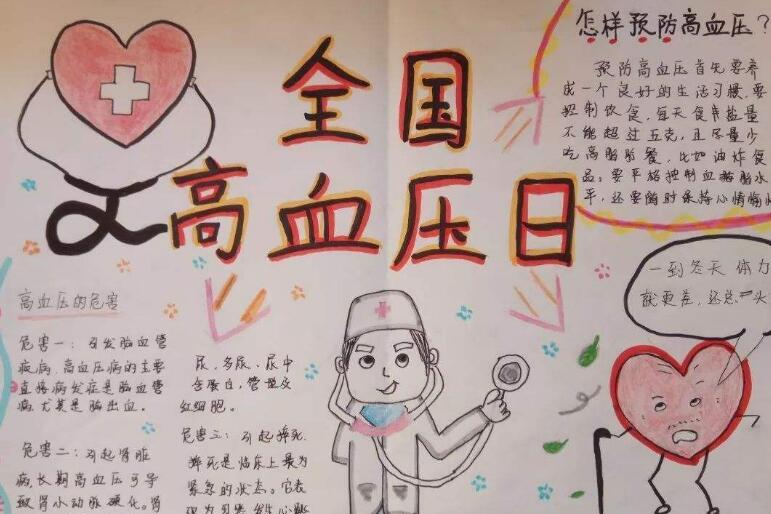 全国
高血压日
怎样预防高血压？
预防高血压首先要养
成一个良好的生活习惯，要
控制饮食，每天食用盐量
不能超过五克，且尽量少
吃高脂肪餐，比如油炸食
品。要平稳控制血糖脂水
平，还要随时保持心情愉
一到冬天 体力
就更差，还总 头
高血压的危害
危害一：引发脑血管
疾病，高血压病的主要
直接病发症是脑血管
病尤其是脑出血。
危害二：引起肾脏
病，长期高血压可导
致肾小动脉硬化。肾
尿、多尿、尿中
含蛋白，管型及
红细胞。
危害三：引起猝死
猝死是临床上最为
紧急的状态。它表
现为